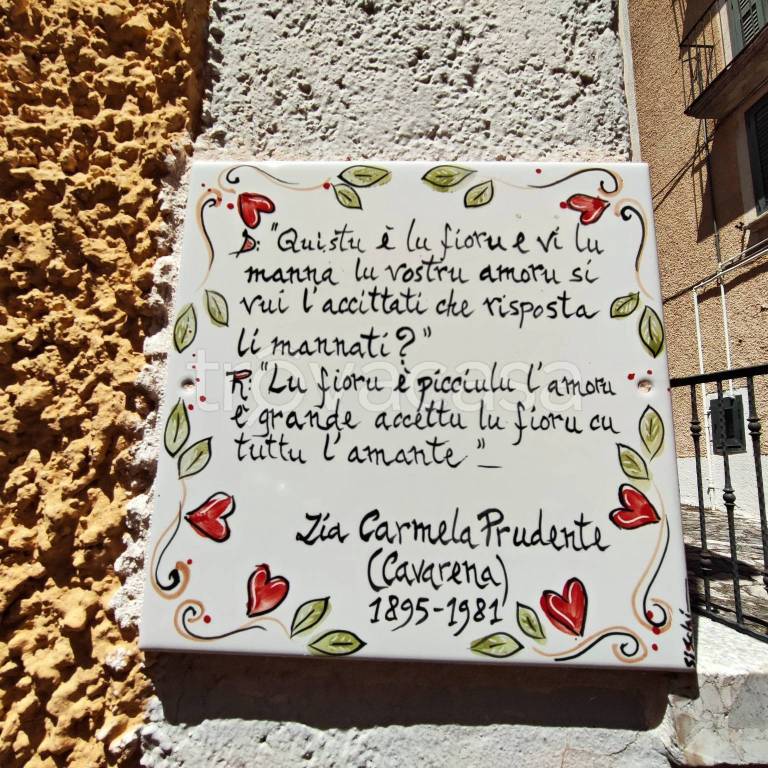 D: "Quistu è lu fioru e vi lu
manna lu vostru amoru si
vui l'accittati che risposta
li mannati?"
R: "Lu fioru è picciulu l'amoru
è grande accettu lu fioru cu
tuttu l'amante"_
Zia Carmela Prudente
(Cavarena)
1895-1981
trovacasa